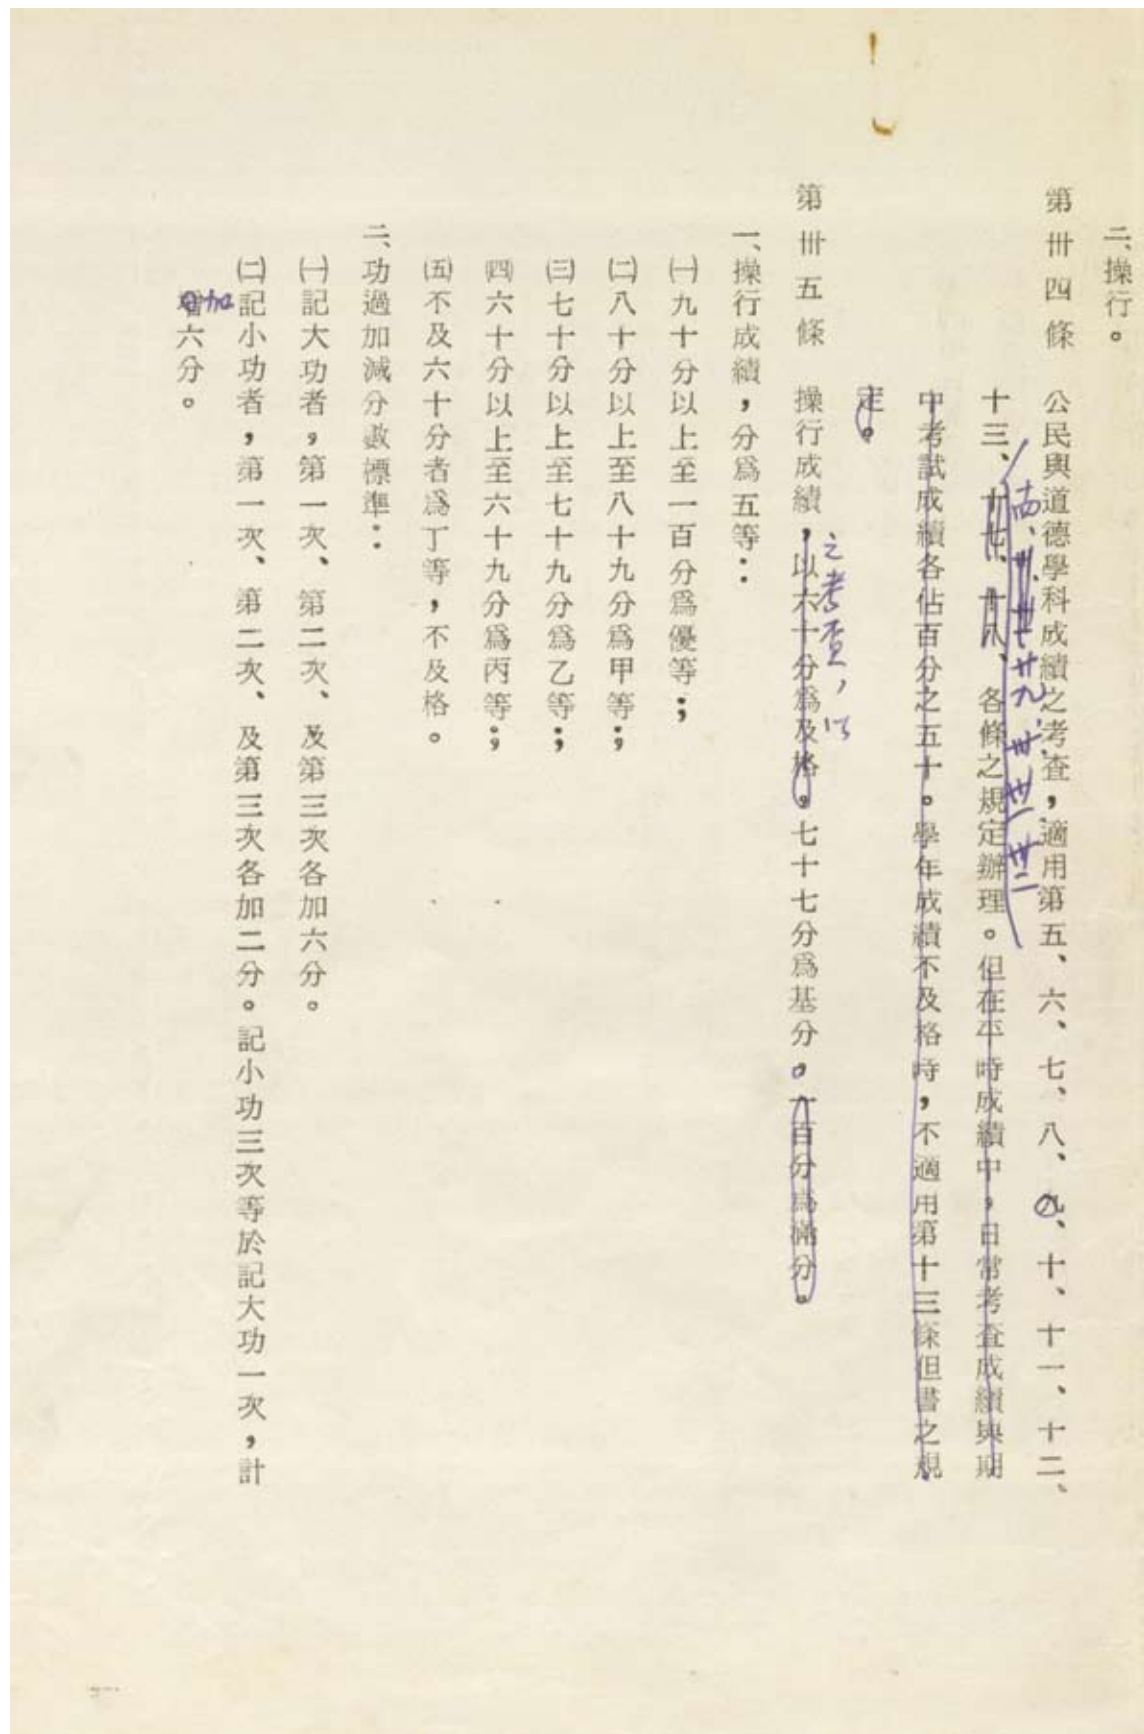 二、操行。
第卅四條　公民與道德學科成績之考查，適用第五、六、七、八、九、十、十一、十二、
十三、十七、十八、各條之規定辦理。但在平時成績中，日常考查成績與期
廿九、卅、卅一、卅二
中考試成績各佔百分之五十。學年成績不及格時，不適用第十三條但書之規
定。
第卅五條　操行成績，以六十分爲及格，七十七分爲基分。一百分爲滿分。
之考查，以
一、操行成績，分爲五等：
㈠九十分以上至一百分爲優等；
㈡八十分以上至八十九分爲甲等；
㈢七十分以上至七十九分爲乙等；
㈣六十分以上至六十九分爲丙等；
㈤不及六十分者爲丁等，不及格。
二、功過加減分數標準：
㈠記大功者，第一次、第二次、及第三次各加六分。
㈡記小功者，第一次、第二次、及第三次各加二分。記小功三次等於記大功一次，計
加六分。